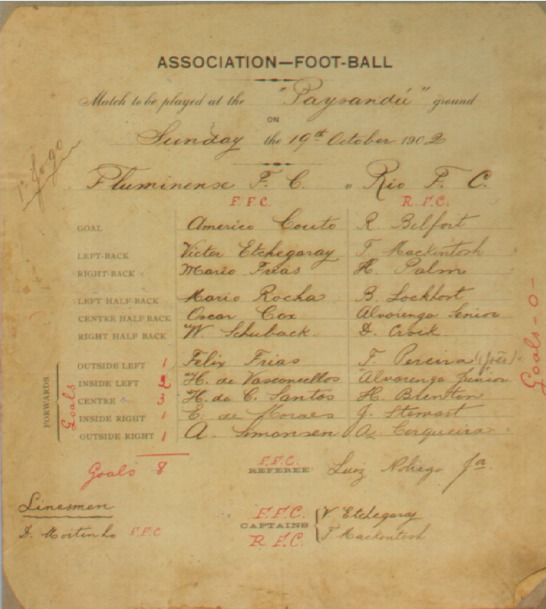 ASSOCIATION—FOOT-BALL
Match to be played at the "Paysandú" ground
ON
Sunday the 19th October 1902
1º Jogo
Fluminense F. C. v Rio F. C.
F.F.C. R.F.C.
GOAL Americo Couto R. Belfort
LEFT-BACK Victor Etchegaray T. Mackintosh
RIGHT-BACK Mario Frias H. Palm
LEFT HALF BACK Mario Rocha B. Lockhort
CENTRE HALF BACK Oscar Cox Alvorenga Senior
RIGHT HALF BACK W Schuback D. Croik
FORWARDS
Goals
OUTSIDE LEFT 1 Felix Frias F. Pereira (João)
INSIDE LEFT 2 H. de Vasconcellos Alvorenga Junior
CENTRE 3 H. da C. Santos H. Brenton
INSIDE RIGHT 1 E. de Moraes J. Stewart
OUTSIDE RIGHT 1 A. Simonsen A. Cerqueira
Goals -0-
Goals 8
F.F.C.
REFEREE Luiz Nobrega Jor
Linesmen
D. Mortinho F.F.C
F.F.C. V Etchegaray
CAPTAINS
R.F.C. T. Mackintosh